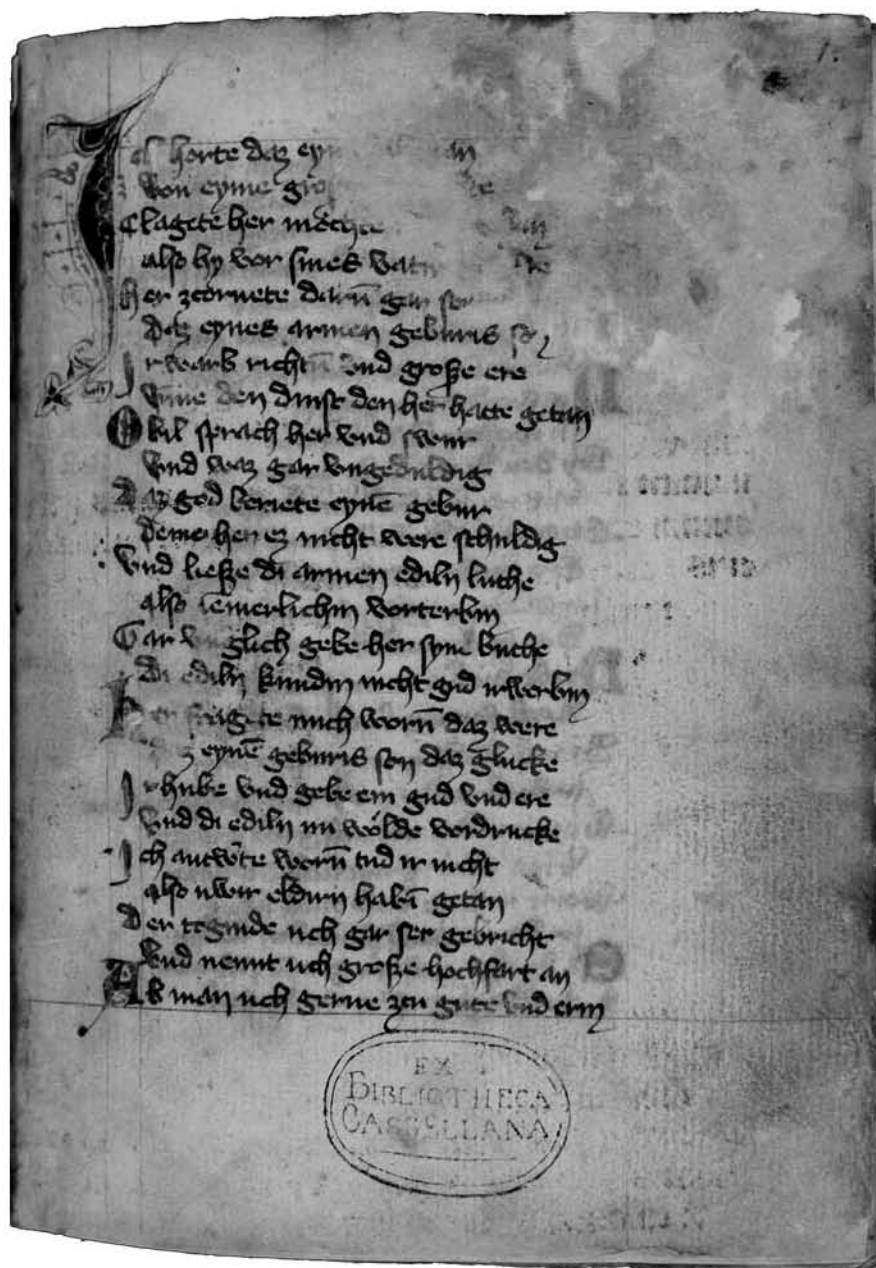 1.
Ich horte daz eyn
von eyme gro
clagete her mochte
also hy vor sines vatir
her zcornete darū gar sere
daz eynes armen geburis so
Irwarb richtū vnd große ere
vmme den dinst den her hatte getan
Obil sprach her vnd swur
vnd waz gar vngeduldig
Daz god beriete eynē gebur
deme her ez nicht were schuldig
Vnd lieſze di armen ediln luthe
also iemerlichin vorterbin
Gar glich gebe her syne buthe
di ediln kundin nicht gud irwerbin
Her fragete mich worū daz were
daz eynē geburis son daz glucke
Irhube vnd gebe em gud vnd ere
vnd di ediln nu wolde vordrucke
Ich antwʾte worū tud ir nicht
also uwir eldirn habī getan
Der toginde uch gar ser gebricht
vnd nemt uch große hochfart an
Ab man uch gerne zcu gute vnd erin
EX
BIBLIOTHECA
CASSELLANA